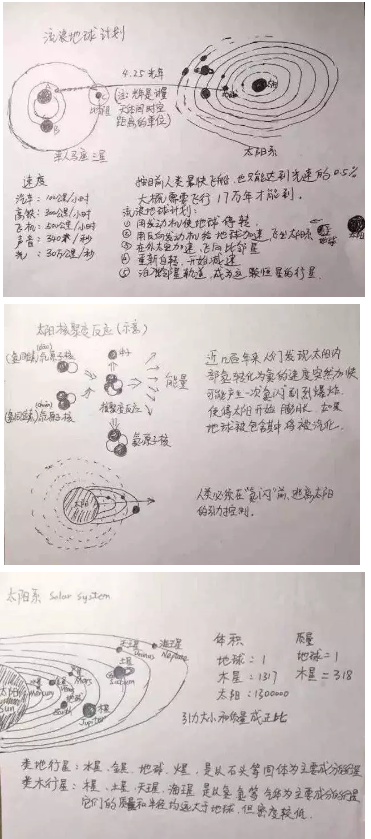 流浪地球计划
4.25光年
(注:光年是计量
天体间时空
距离的单位)
A
B
C
比邻星
半人马座三星
太阳系
速度
汽车:100公里/小时
高铁:300公里/小时
飞机:
声音:340米/秒
光:30万公里/秒
按目前人类最快飞船,也只能达到光速的0.5%
大概需要飞行17万年才能到。
流浪地球计划:
① 用发动机使地球停转
② 用反向发动机给地球加速,飞出太阳系
③ 在外太空加速,飞向比邻星
④ 重新自转,开始减速
⑤ 泊入比邻星轨道,成为这颗恒星的行星。
太阳核聚变反应(示意)
(氢同位素)氘原子核
(氢同位素)氚原子核
中子
能量
核聚变反应
氦原子核
近几百年来人们发现太阳内
部氢转化为氦的速度突然加快
可能产生一次"氦闪"剧烈爆炸,
使得太阳开始膨胀,如果
地球被包含其中将被汽化。
太阳
人类必须在"氦闪"前,逃离太阳
的引力控制。
太阳系 Solar system
天王星
Uranus
海王星
Neptune
土星
Saturn
火星
Mars
水星
Mercury
金星
地球
Earth
木星
Jupiter
太阳
Sun
体积
地球:1
木星:1317
太阳:1300000
质量
地球=1
木星=318
引力大小和质量成正比
类地行星:水星、金星、地球、火星,是从石头等固体为主要成分的行星
类木行星:木星、土星、天王星、海王星,是从氢、氦等气体为主要成分的行星
它们的质量和半径均远大于地球,但密度较低。